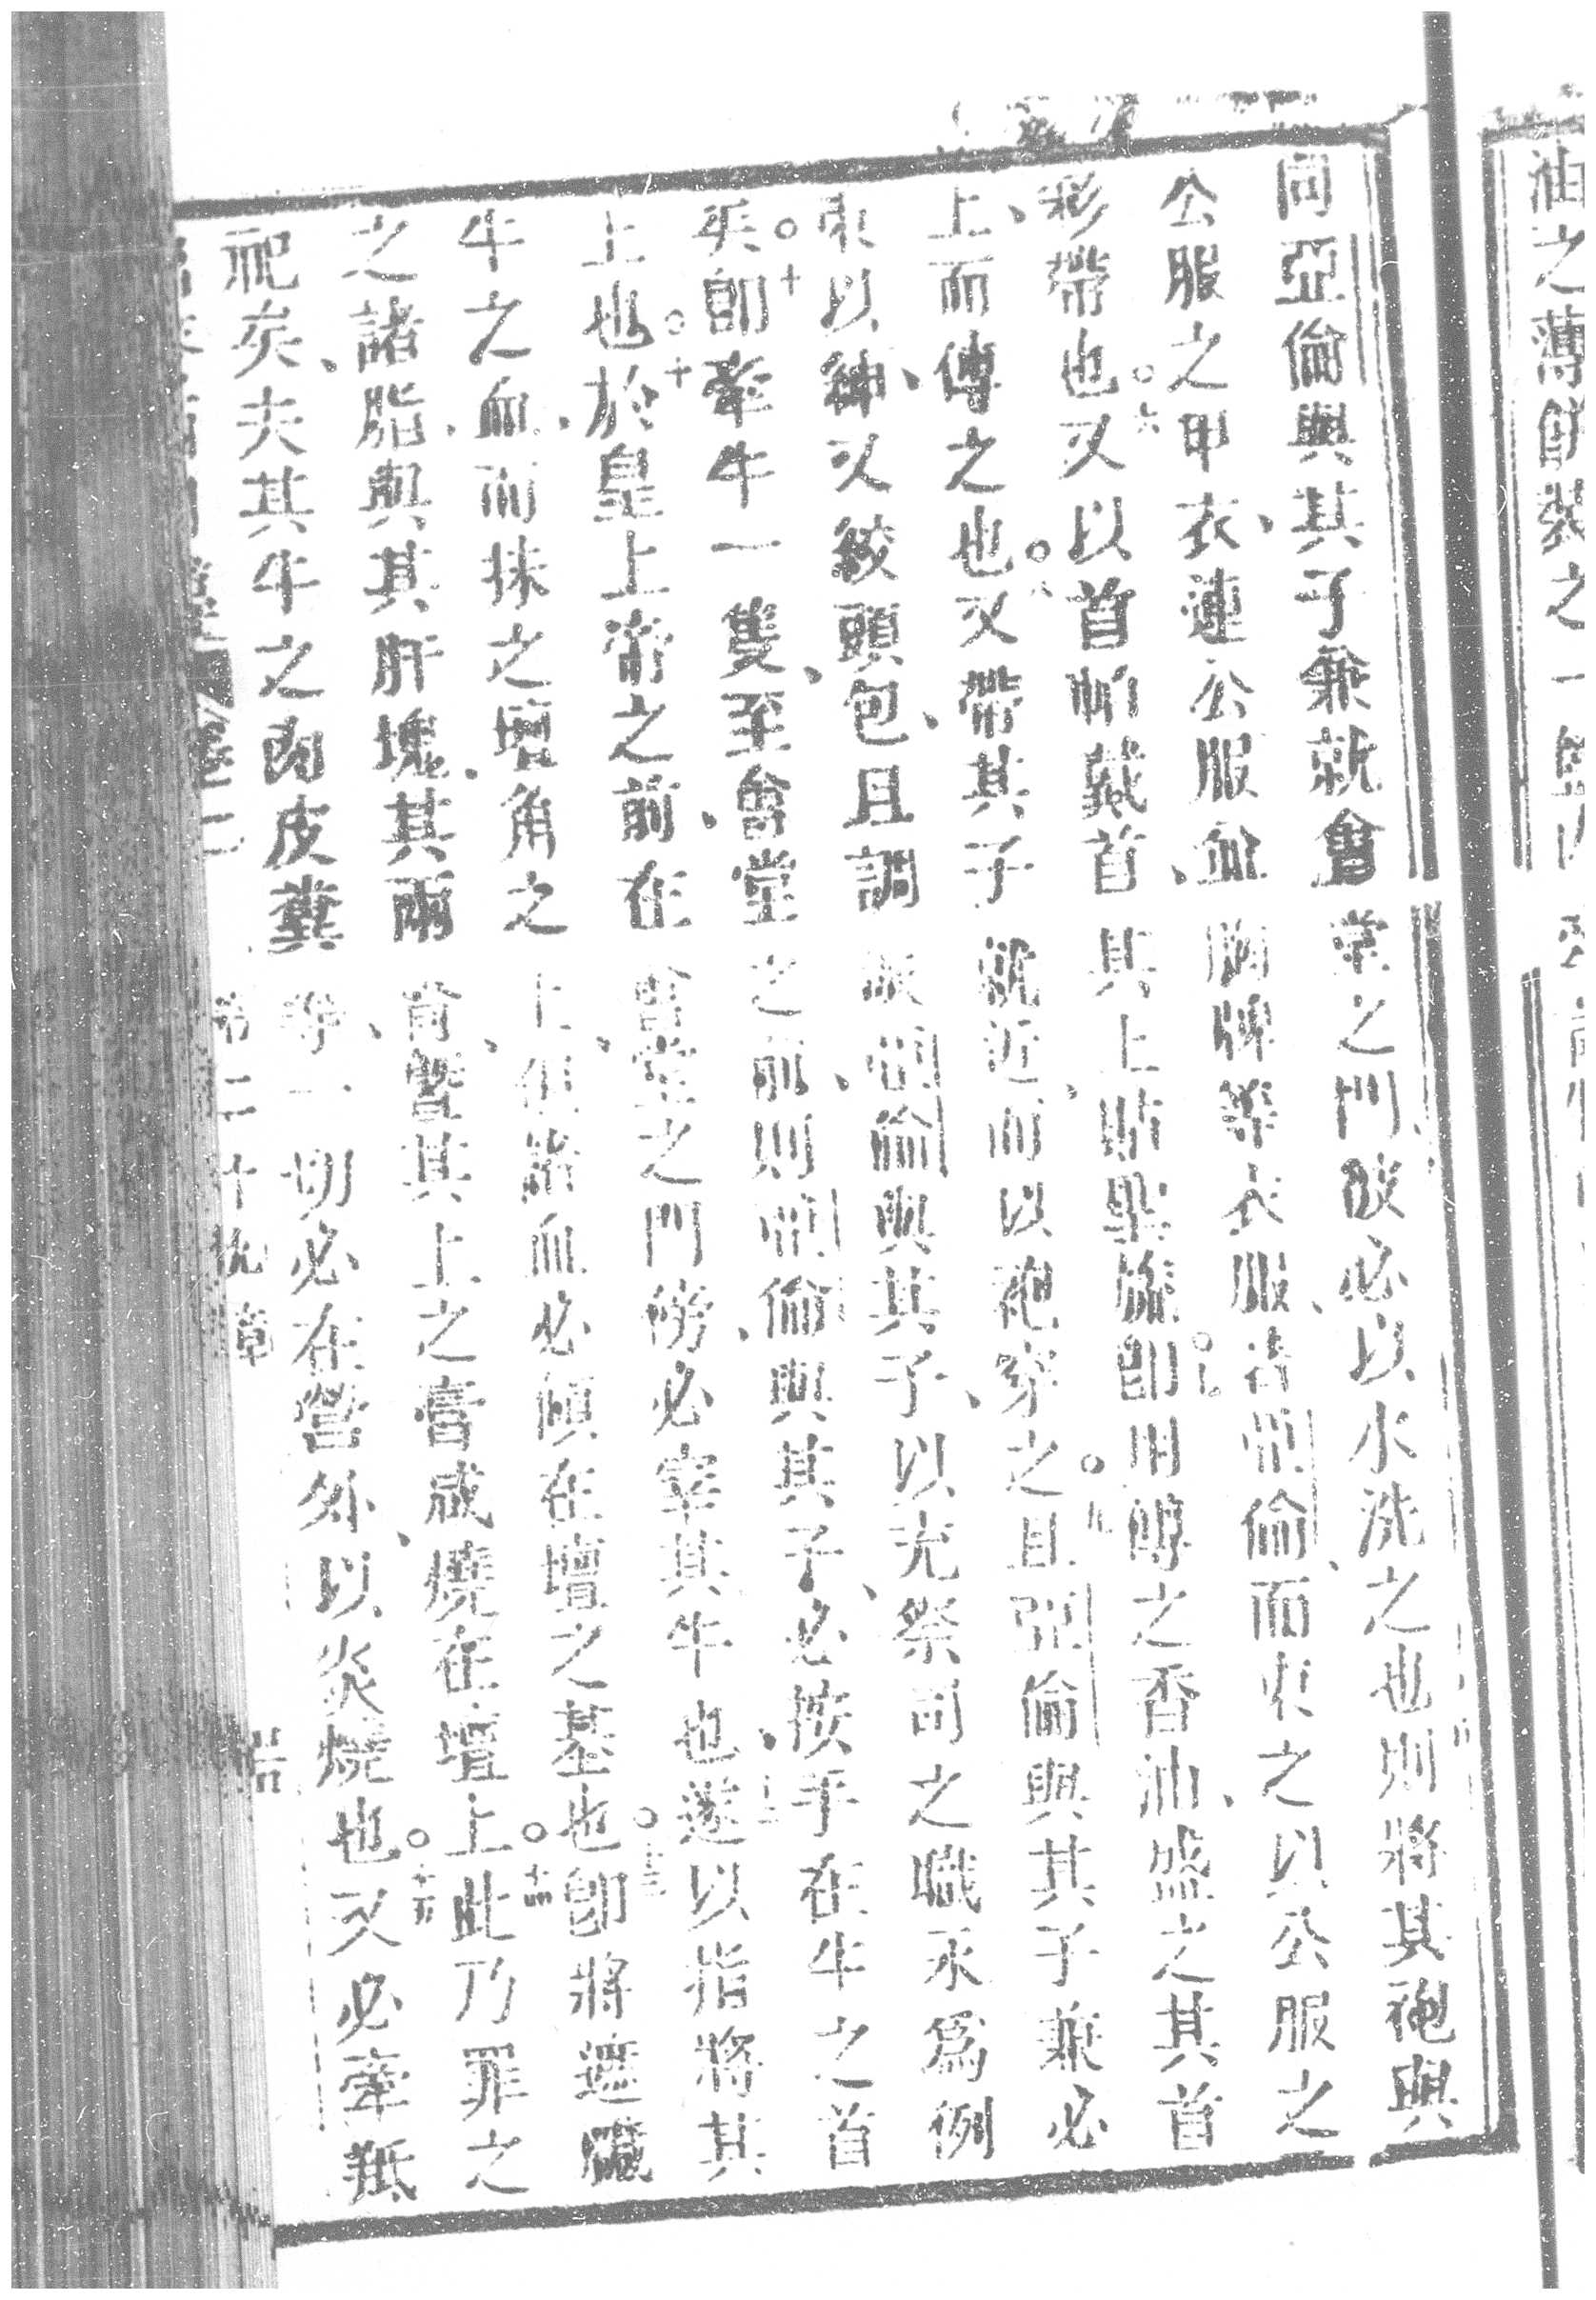 同亞倫與其子兼就會堂之門彼必以水洗之也則將其袍與
公服之甲衣、連公服、並胸牌等衣服、着亞倫、而束之以公服之
彩帶也。六又以首帕戴首其上貼聖旒。七即用傅之香油、盛之其首
上、而傅之也。八又帶其子就近、而以袍穿之。九且亞倫與其子兼必
束以紳、又絞頭包、且調派亞倫與其子、以充祭司之職永爲例
矣。十即牽牛一隻、至會堂之前、則亞倫與其子、必按手在牛之首
上也。十於皇上帝之前、在會堂之門傍、必宰其牛也、遂以指將其
牛之血、而抹之壇角之上、但諸血必傾在壇之基也。十三即將遮臟
之諸脂、與其肝塊、其兩腎、暨其上之膏、咸燒在壇上。十四此乃罪之
祀矣、夫其牛之肉皮糞等、一切必在營外、以炎燒也。十五又必牽羝
卷二 第二十九章
油之薄餅裝之一